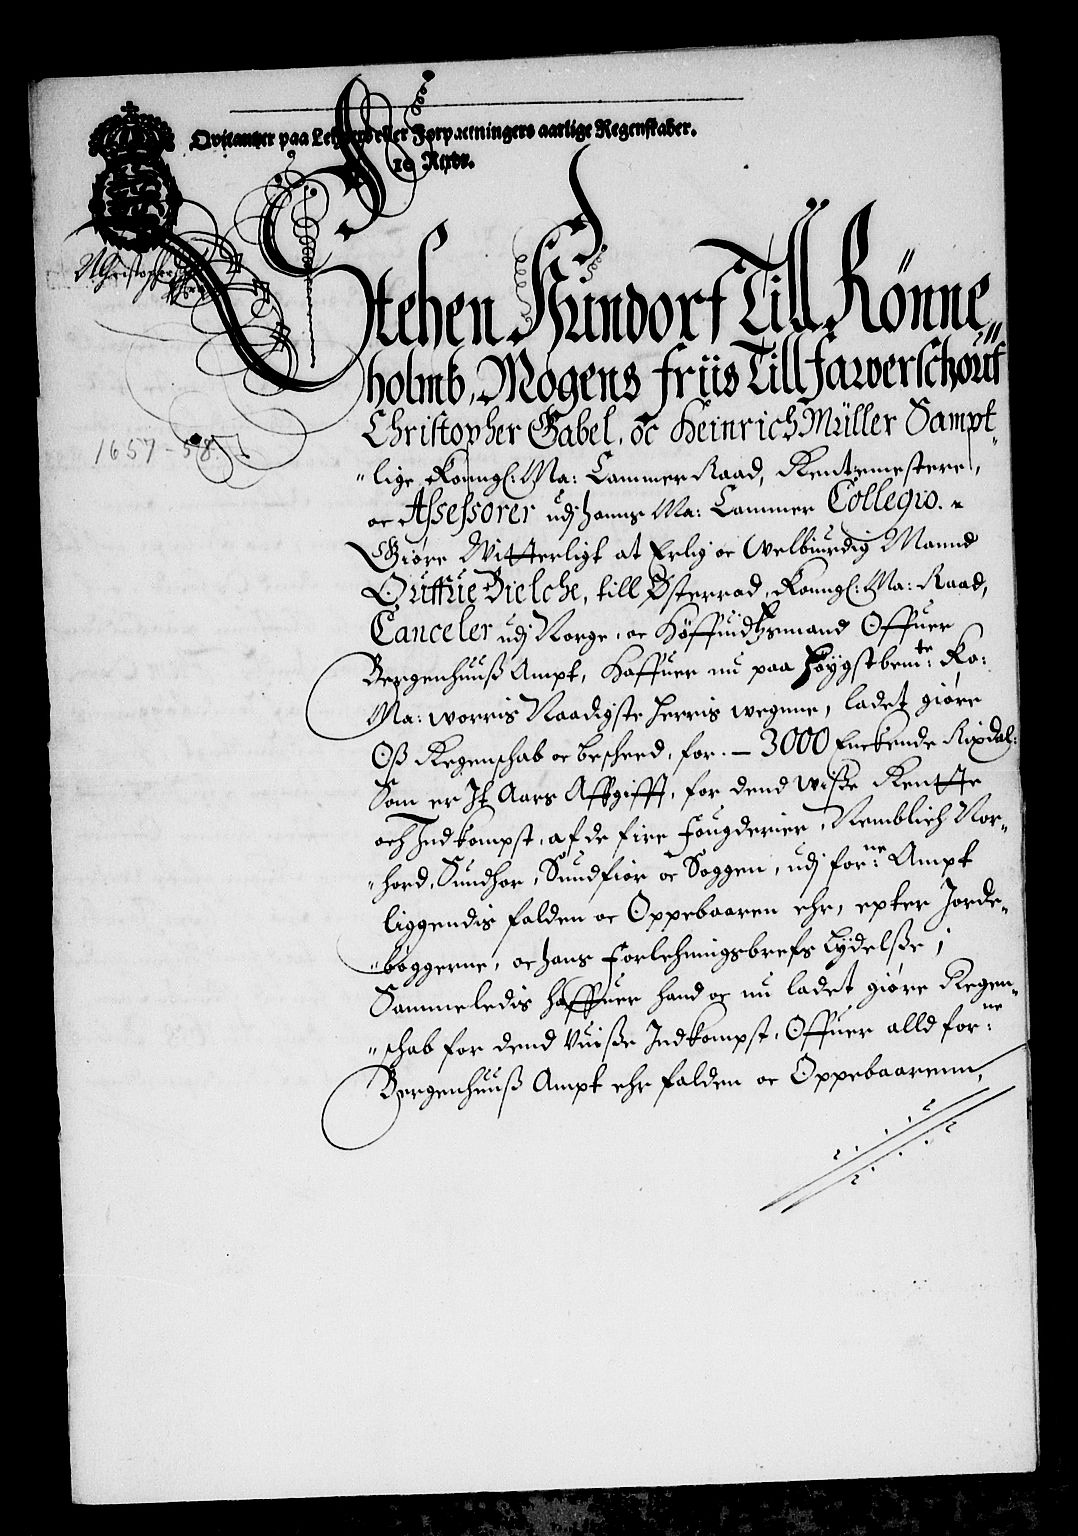 Qvitantzer paa Lehens eller Forpactningers aarlige Regenskaber.
10 Rixdr.
1657-58.
Stehen Hundorf Till Rönne„
holmb, Mogens friis Till farverschouf
Christopher Gabel, oc Heinrich Müller Sampt„
„lige Konngl: Ma: Cammer Raad, Rentemestere,
oc Assessorer udj hanns Ma: Cammer Collegio.
Giöre Witterligt at Erlig oc Welbiurdig Mannd
Ouffue Bielche, till Østerrad, Konngl: Ma: Raad,
Canceler udj Norge, oc Höffuidtzmand Offuer
Bergenhuuß Ampt, Haffuer nu paa Höygstbemte: Ko:
Ma: worris Naadigste Herris wegnne, ladet giöre
Oß Regenschab oc bescheed, for. — 3000 Enckende Rixdal:
Som er Jt Aars Affgifft, for dend Wiße Rentte
och Indkompst, af de fire fougderier, Nemblich Nor„
„hord, Sundhor, Sundfiör oc Soggen, udj forne: Ampt
liggendis falden oc Oppebaaren ehr, epter Jorde„
„böggerne, oc hans Forlehningsbrefs Lydelße;
Sammeledis haffuer hand oc nu ladet giöre Regen„
„schab for dend Vuiße Indkompst, Offuer alld forne:
Bergenhuuß Ampt ehr falden oc Oppebaarenn,